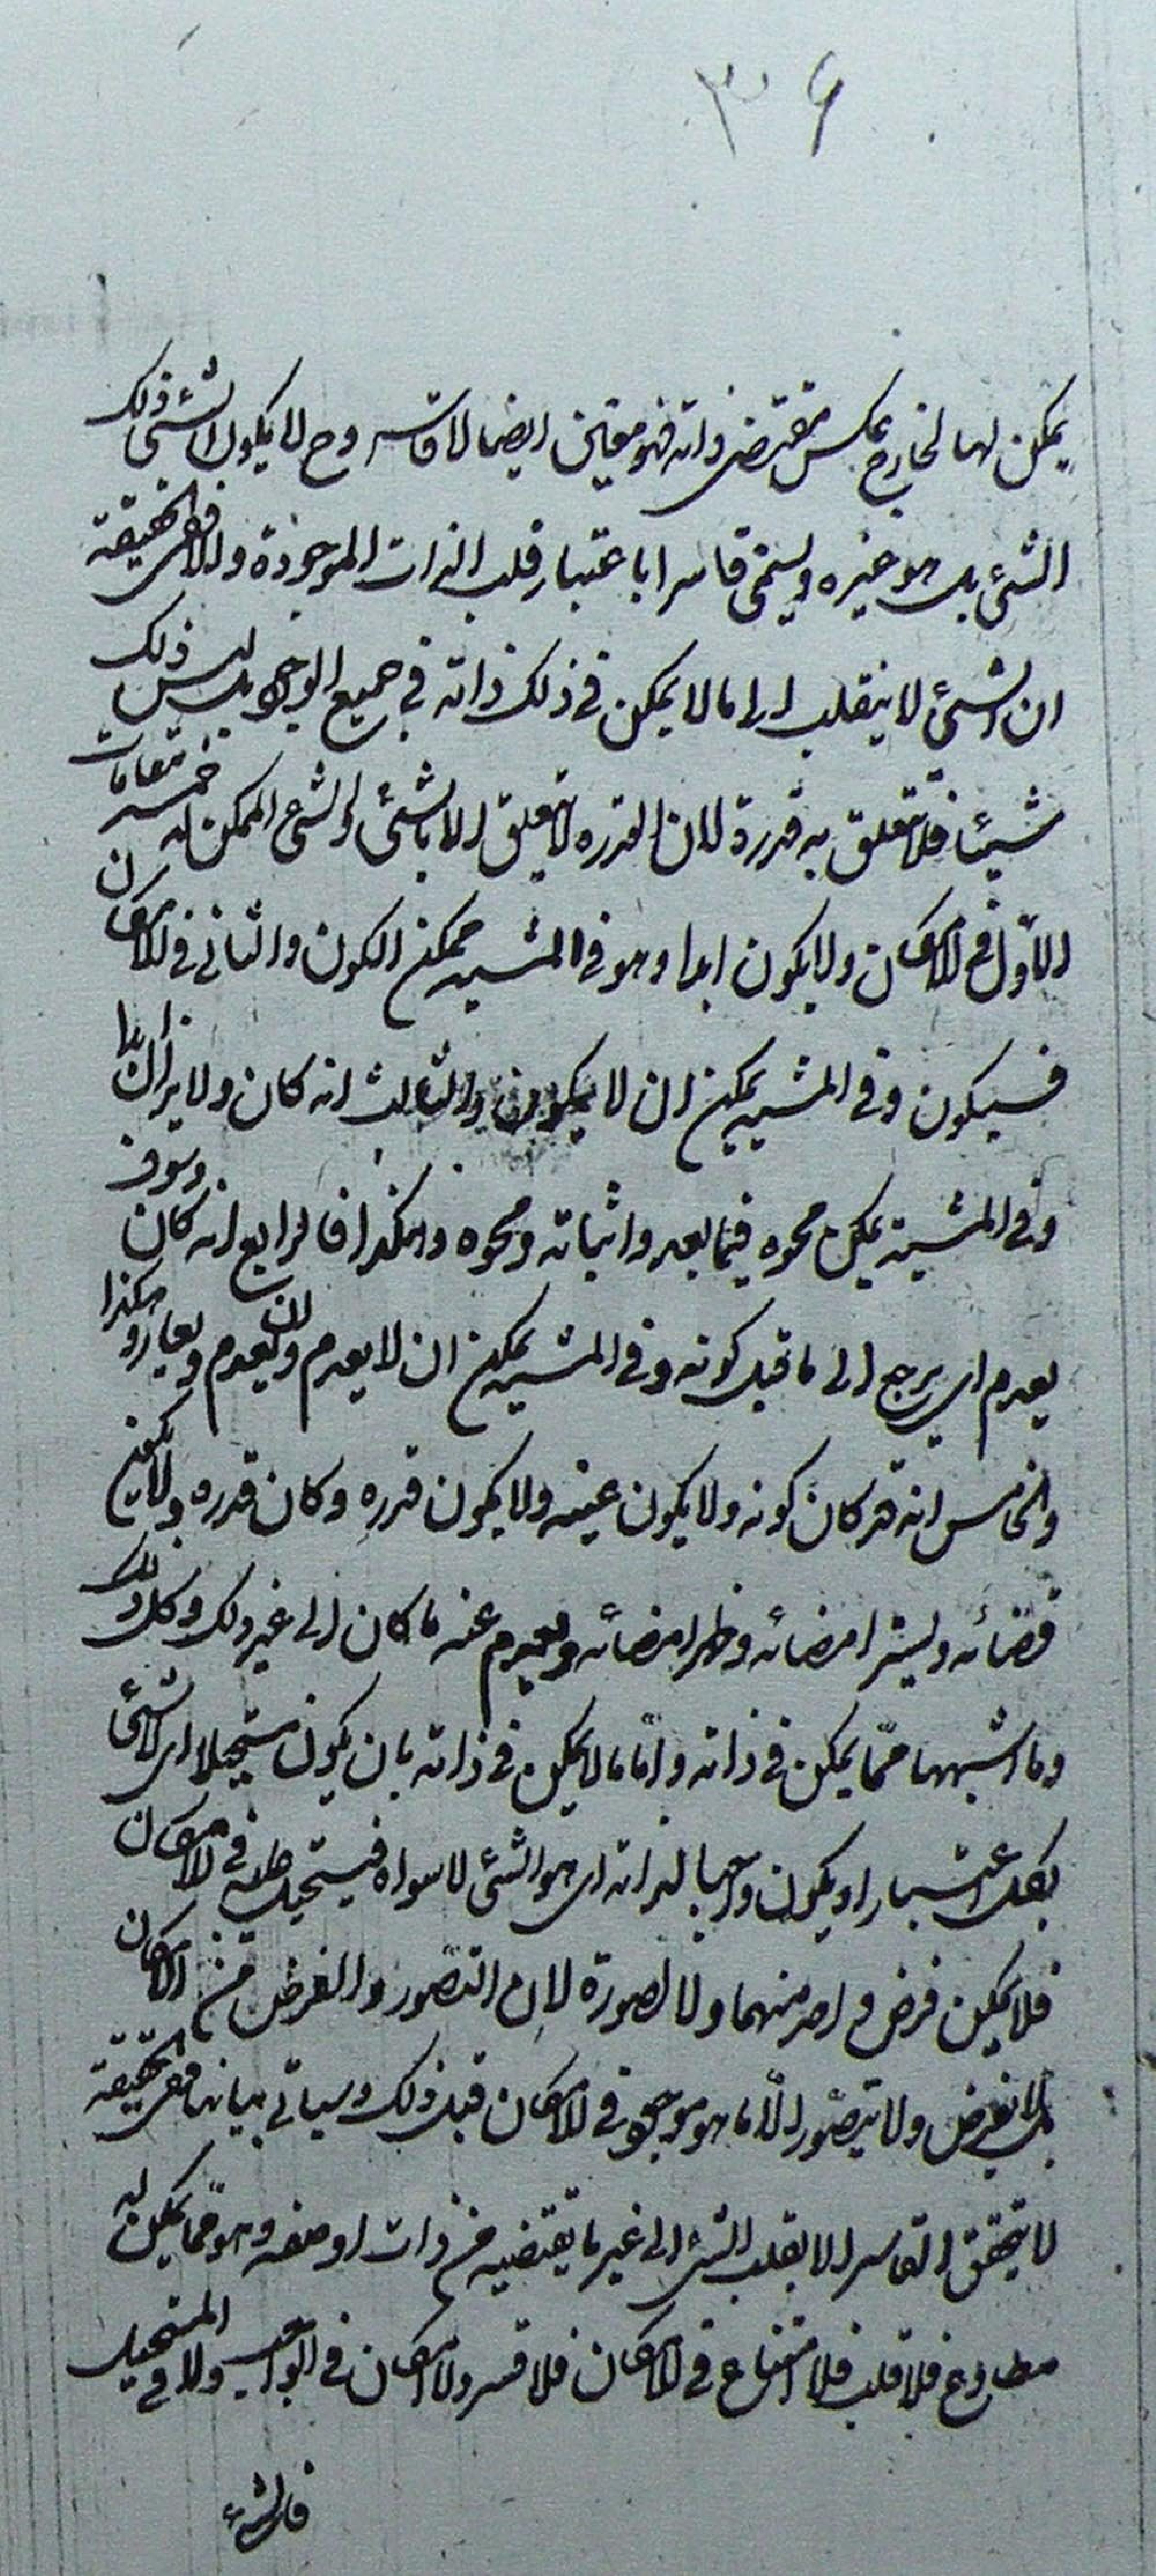 ۳۶
يمكن لها لخارج بعكس مقتضى ذاته فهو مقتض ايضا لا قاسر وح لا يكون الشئ ذلك
الشئ بل هو غيره ويسمى قاسرا باعتبار قلب الذات الموجودة والا ففى الحقيقة
ان الشئ لا ينقلب الى ما لا يمكن فى ذلك ذاته فى جميع الوجوه بل ليس ذلك
شيئا فلا تتعلق به قدرة لان القدرة لا تتعلق الا بالشئ والشئ الممكن له خمسه مقامات
الاول فى الامكان ولا يكون ابدا وهو فى المشيه ممكن الكون والثانى فى الامكان
فسيكون وفى المشيه يمكن ان لا يكون والثالث انه كان ولا يزال ابدا
وفى المشية يمكن محوه فيما بعد واثباته ومحوه وهكذا فالرابع انه كان وسوف
يعدم اى يرجع الى ما قبل كونه وفى المشيه يمكن ان لا يعدم وان يعدم ويعاد وهكذا
والخامس انه قد كان كونه ولا يكون عينه ولا يكون قدره وكان قدره ولا يكون
قضائه ويستر امضائه وظهر امضائه ويعدم عنه ما كان الى غير ذلك وكل ذلك
وما اشبهها مما يمكن فى ذاته واما ما لا يمكن فى ذاته بان يكون مستحيلا اى لا شئ
بكل اعتبار او يكون واجبا لذاته اى هو الشئ لا سواه فيستحيل ظله فى الامكان
فلا يمكن فرض واحد منهما ولا تصوره لان التصور والفرض من الامكان
بل لا يفرض ولا يتصور الا ما هو موجود فى الامكان قبل ذلك وسياتى بيانه ففى الحقيقة
لا يتحقق القاسر الا بقلب الشئ الى غير ما يقتضيه من ذات او صفه وهو مما يمكن له
مطاوع فلا قلب فلا امتناع فى الامكان فلا قسر ولا امكان فى الواجب ولا فى المستحيل
فالشئ